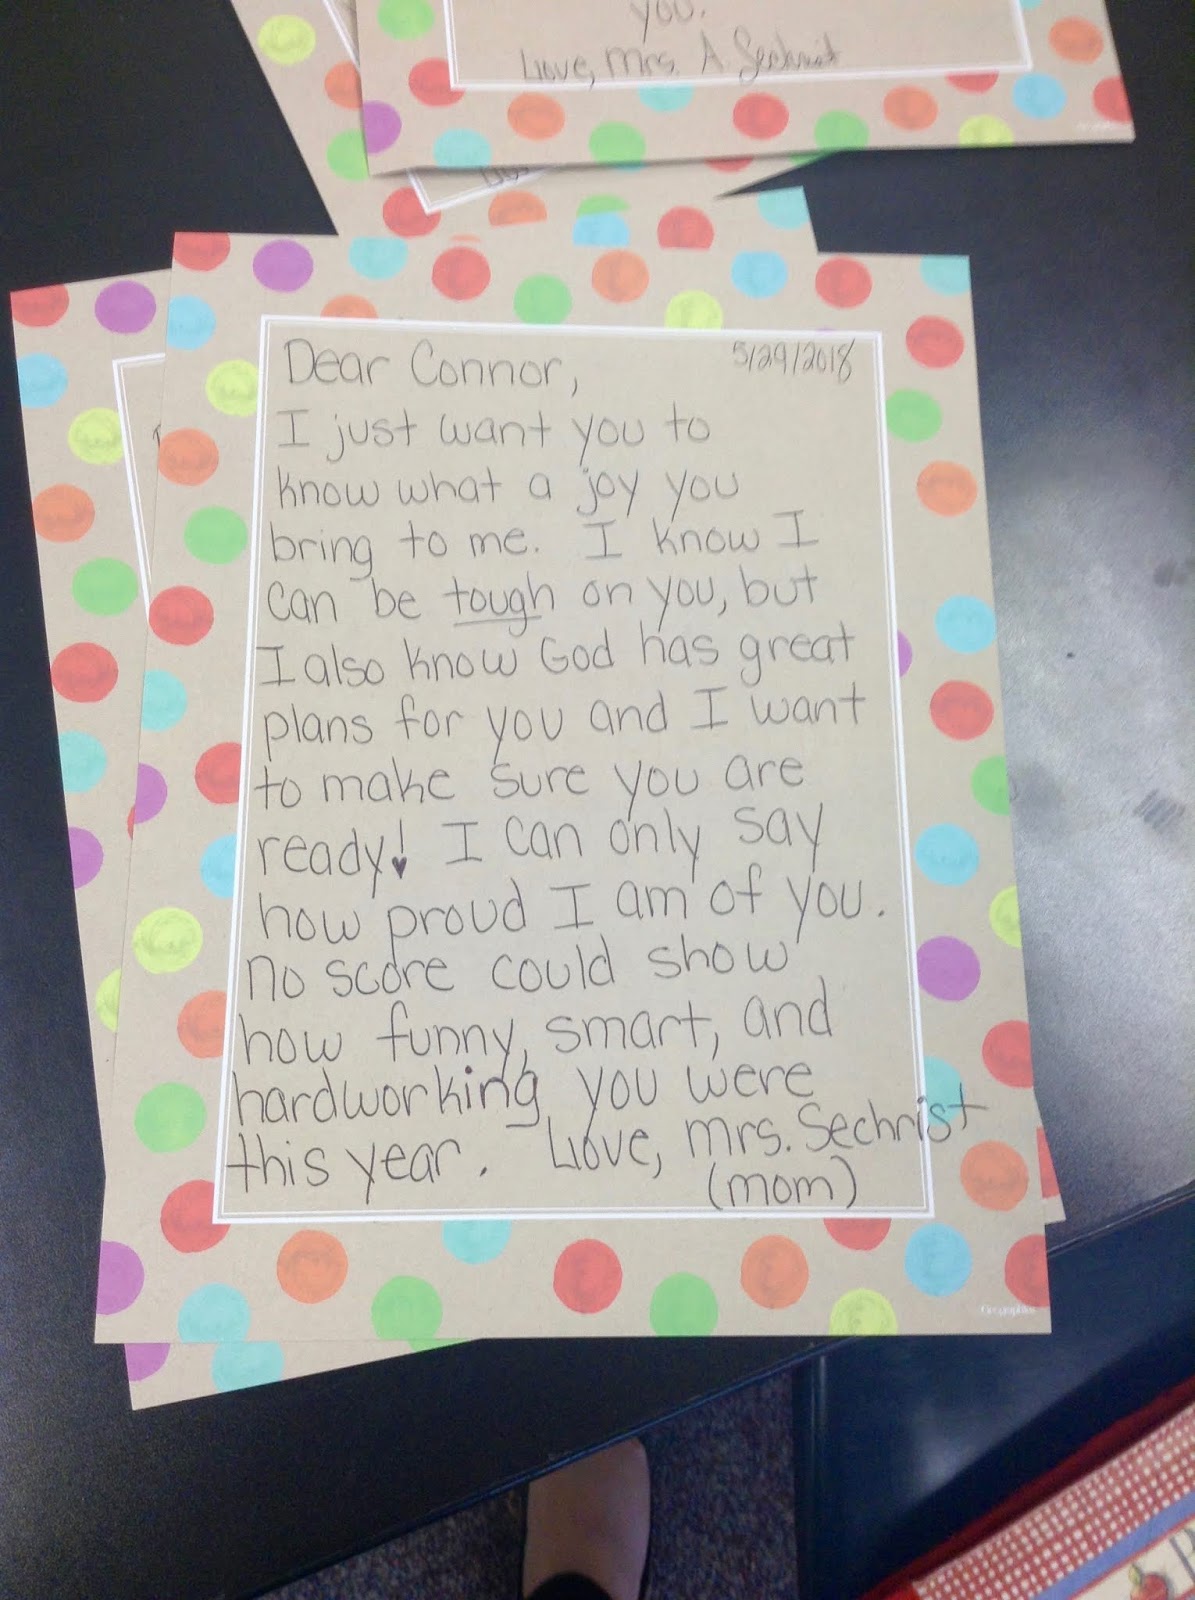 you.
Love, Mrs. A. Sechrist
Dear Connor,
5/29/2018
I just want you to
know what a joy you
bring to me. I know I
can be tough on you, but
I also know God has great
plans for you and I want
to make sure you are
ready! I can only say
how proud I am of you.
No score could show
how funny, smart, and
hardworking you were
this year. Love, Mrs. Sechrist
(mom)